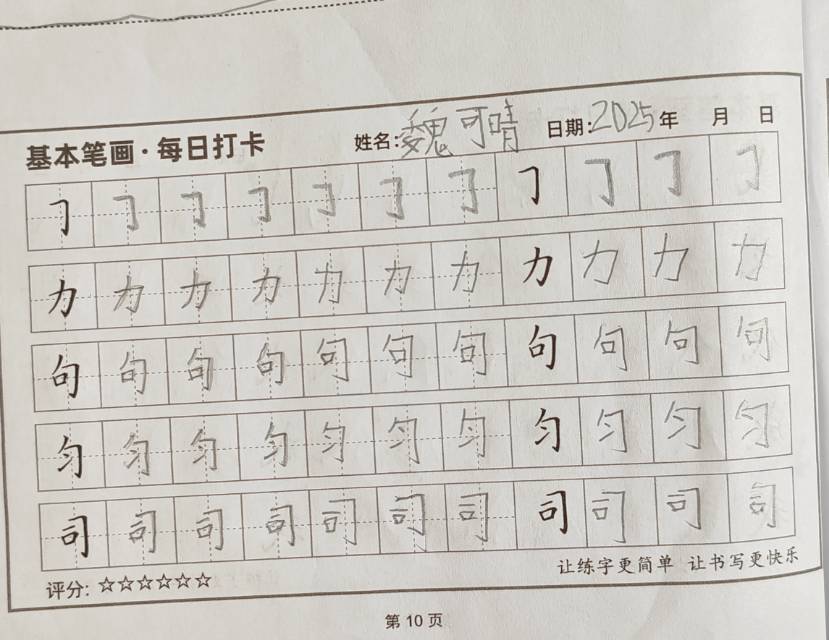 基本笔画·每日打卡 姓名:魏可晴 日期:2025年 月 日
㇆ ㇆ ㇆ ㇆ ㇆ ㇆ ㇆ ㇆ ㇆ ㇆ ㇆
力 力 力 力 力 力 力 力 力 力 力
句 句 句 句 句 句 句 句 句 句 句
匀 匀 匀 匀 匀 匀 匀 匀 匀 匀 匀
司 司 司 司 司 司 司 司 司 司 司
评分:☆☆☆☆☆☆ 让练字更简单 让书写更快乐
第 10 页